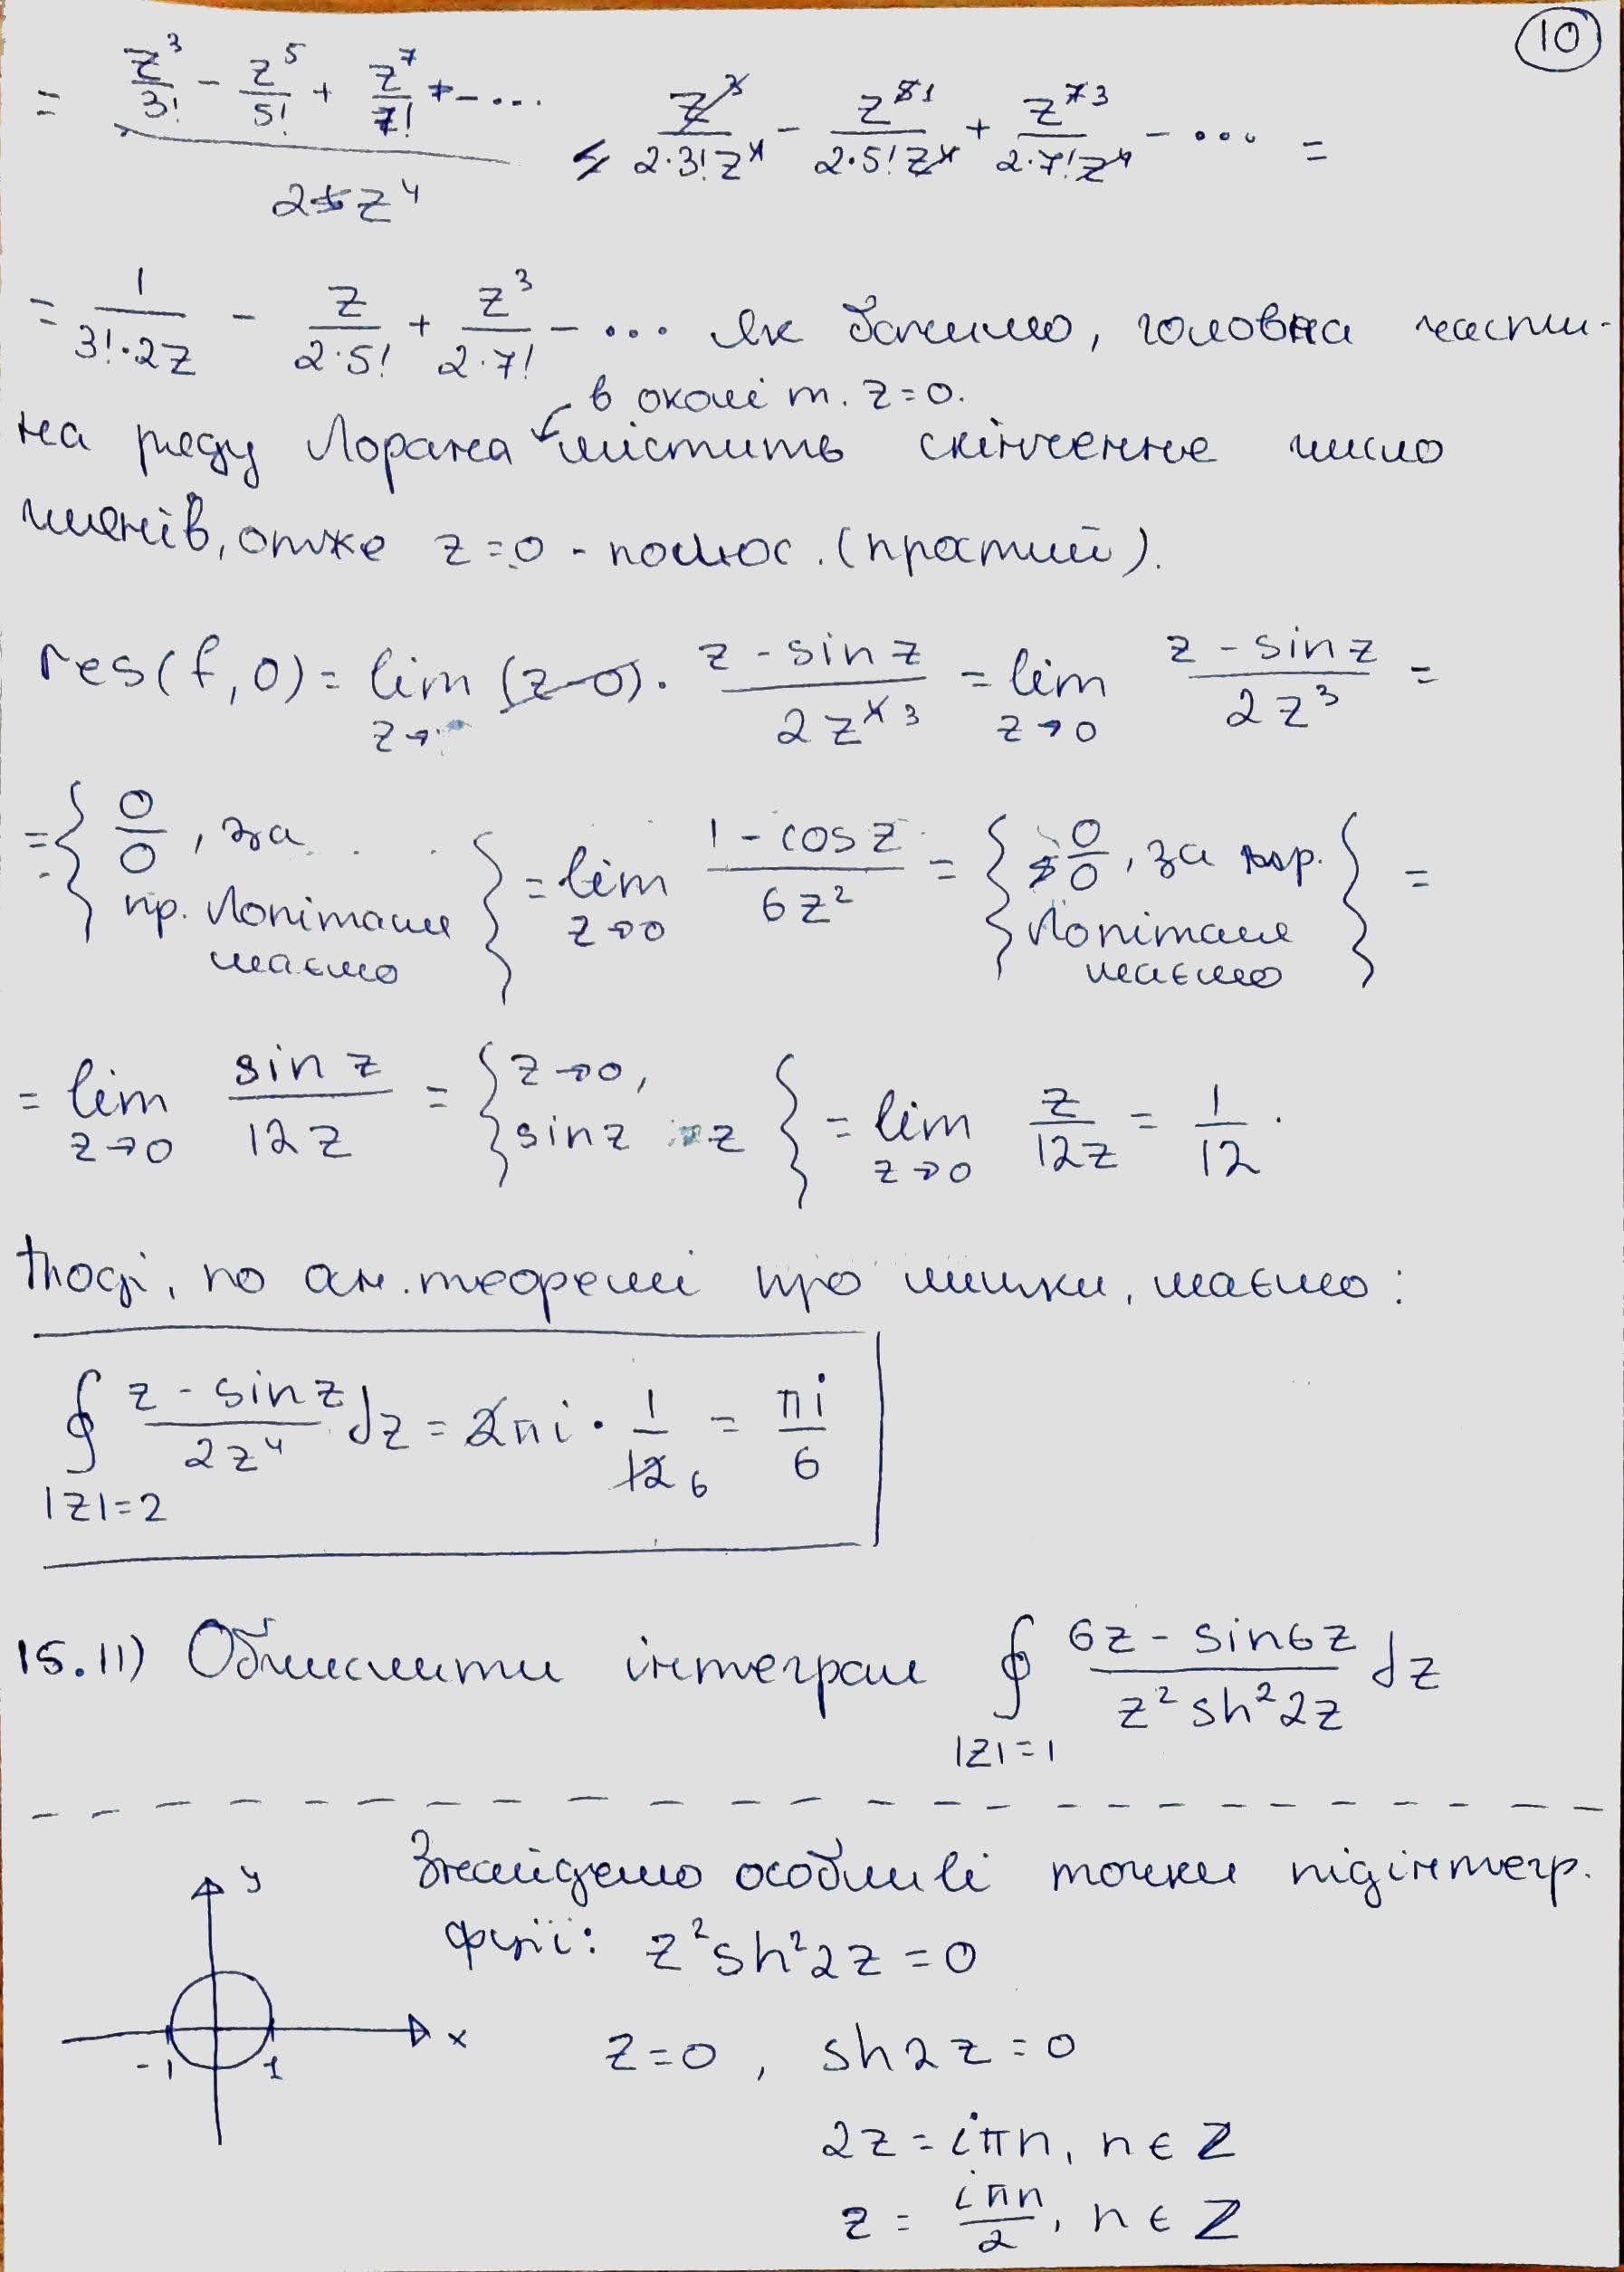 10
= (z³/3! - z⁵/5! + z⁷/7! - ...)/(2z⁴) = z³/(2·3!z⁴) - z⁵¹/(2·5!z⁴) + z⁷³/(2·7!z⁴) - ... =
= 1/(3!·2z) - z/(2·5!) + z³/(2·7!) - ... Як бачимо, головна части-
в околі т. z=0.
на ряду Лорана містить скінченне число
членів, отже z=0 - полюс. (простий).
res(f,0) = lim z→ (z-0) · (z - sin z)/(2z⁴³) = lim z→0 (z - sin z)/(2z³) =
= { 0/0, за пр. Лопіталя маємо } = lim z→0 (1 - cos z)/(6z²) = { 0/0, за пр. Лопіталя маємо } =
= lim z→0 (sin z)/(12z) = { z→0, sin z ~ z } = lim z→0 z/(12z) = 1/12.
Тоді, по осн. теоремі про лишки, маємо:
∮ |z|=2 (z - sin z)/(2z⁴) dz = 2πi · 1/12 6 = πi/6
15.11) Обчислити інтеграл ∮ |z|=1 (6z - sin6z)/(z² sh²2z) dz
Знайдемо особливі точки підінтегр.
y
ф-ції: z²sh²2z = 0
x
-1 1
z=0, sh2z=0
2z = iπn, n∈Z
z = iπn/2, n∈Z